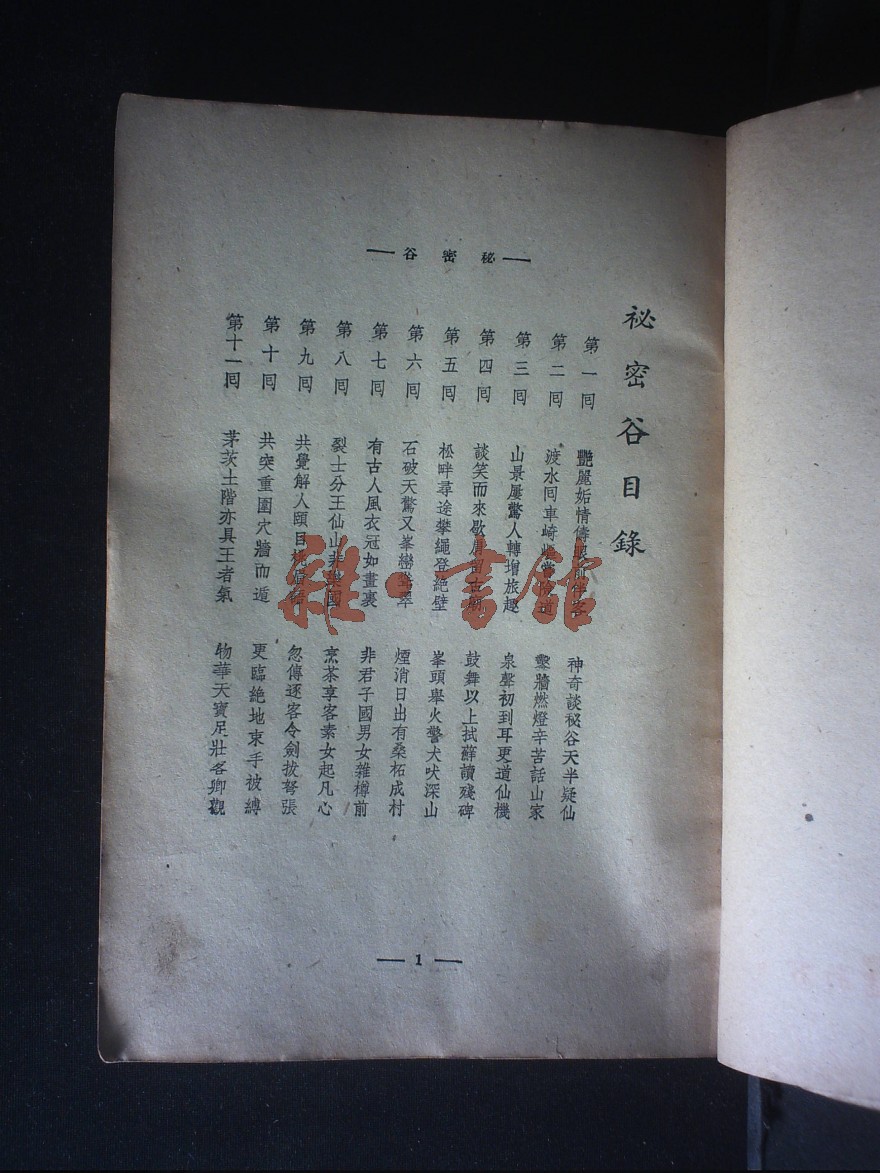 秘密谷
祕密谷目錄
第一囘 艷麗妬情儔伴客 神奇談秘谷天半疑仙
第二囘 渡水囘車崎嶇嘗險道 鑿牆燃燈辛苦話山家
第三囘 山景屢驚人轉增旅趣 泉聲初到耳更道仙機
第四囘 談笑而來歇肩留古廟 鼓舞以上拭蘚讀殘碑
第五囘 松畔尋途攀繩登絕壁 峯頭舉火警犬吠深山
第六囘 石破天驚又峯巒聳翠 煙消日出有桑柘成村
第七囘 有古人風衣冠如畫裏 非君子國男女雜樽前
第八囘 裂士分王仙山非樂國 烹茶享客素女起凡心
第九囘 共覺解人頤目挑眉語 忽傳逐客令劍拔弩張
第十囘 共突重圍穴牆而遁 更臨絕地束手被縛
第十一囘 茅茨土階亦具王者氣 物華天寶足壯各卿觀
1
雜·書館